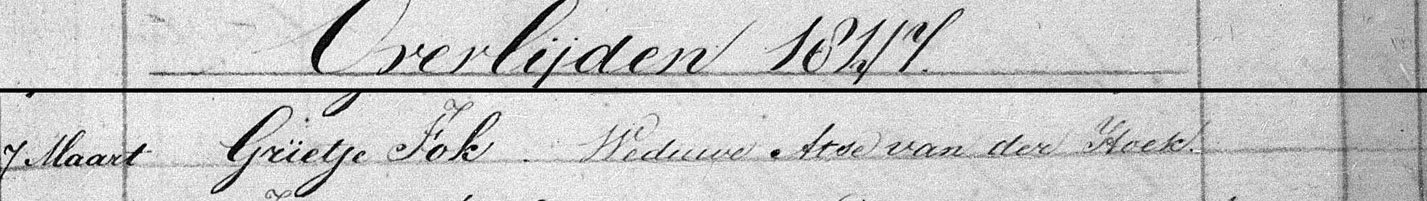 Overlijden 1847.
7 Maart Grietje Fok. Weduwe Atse van der Hoek.